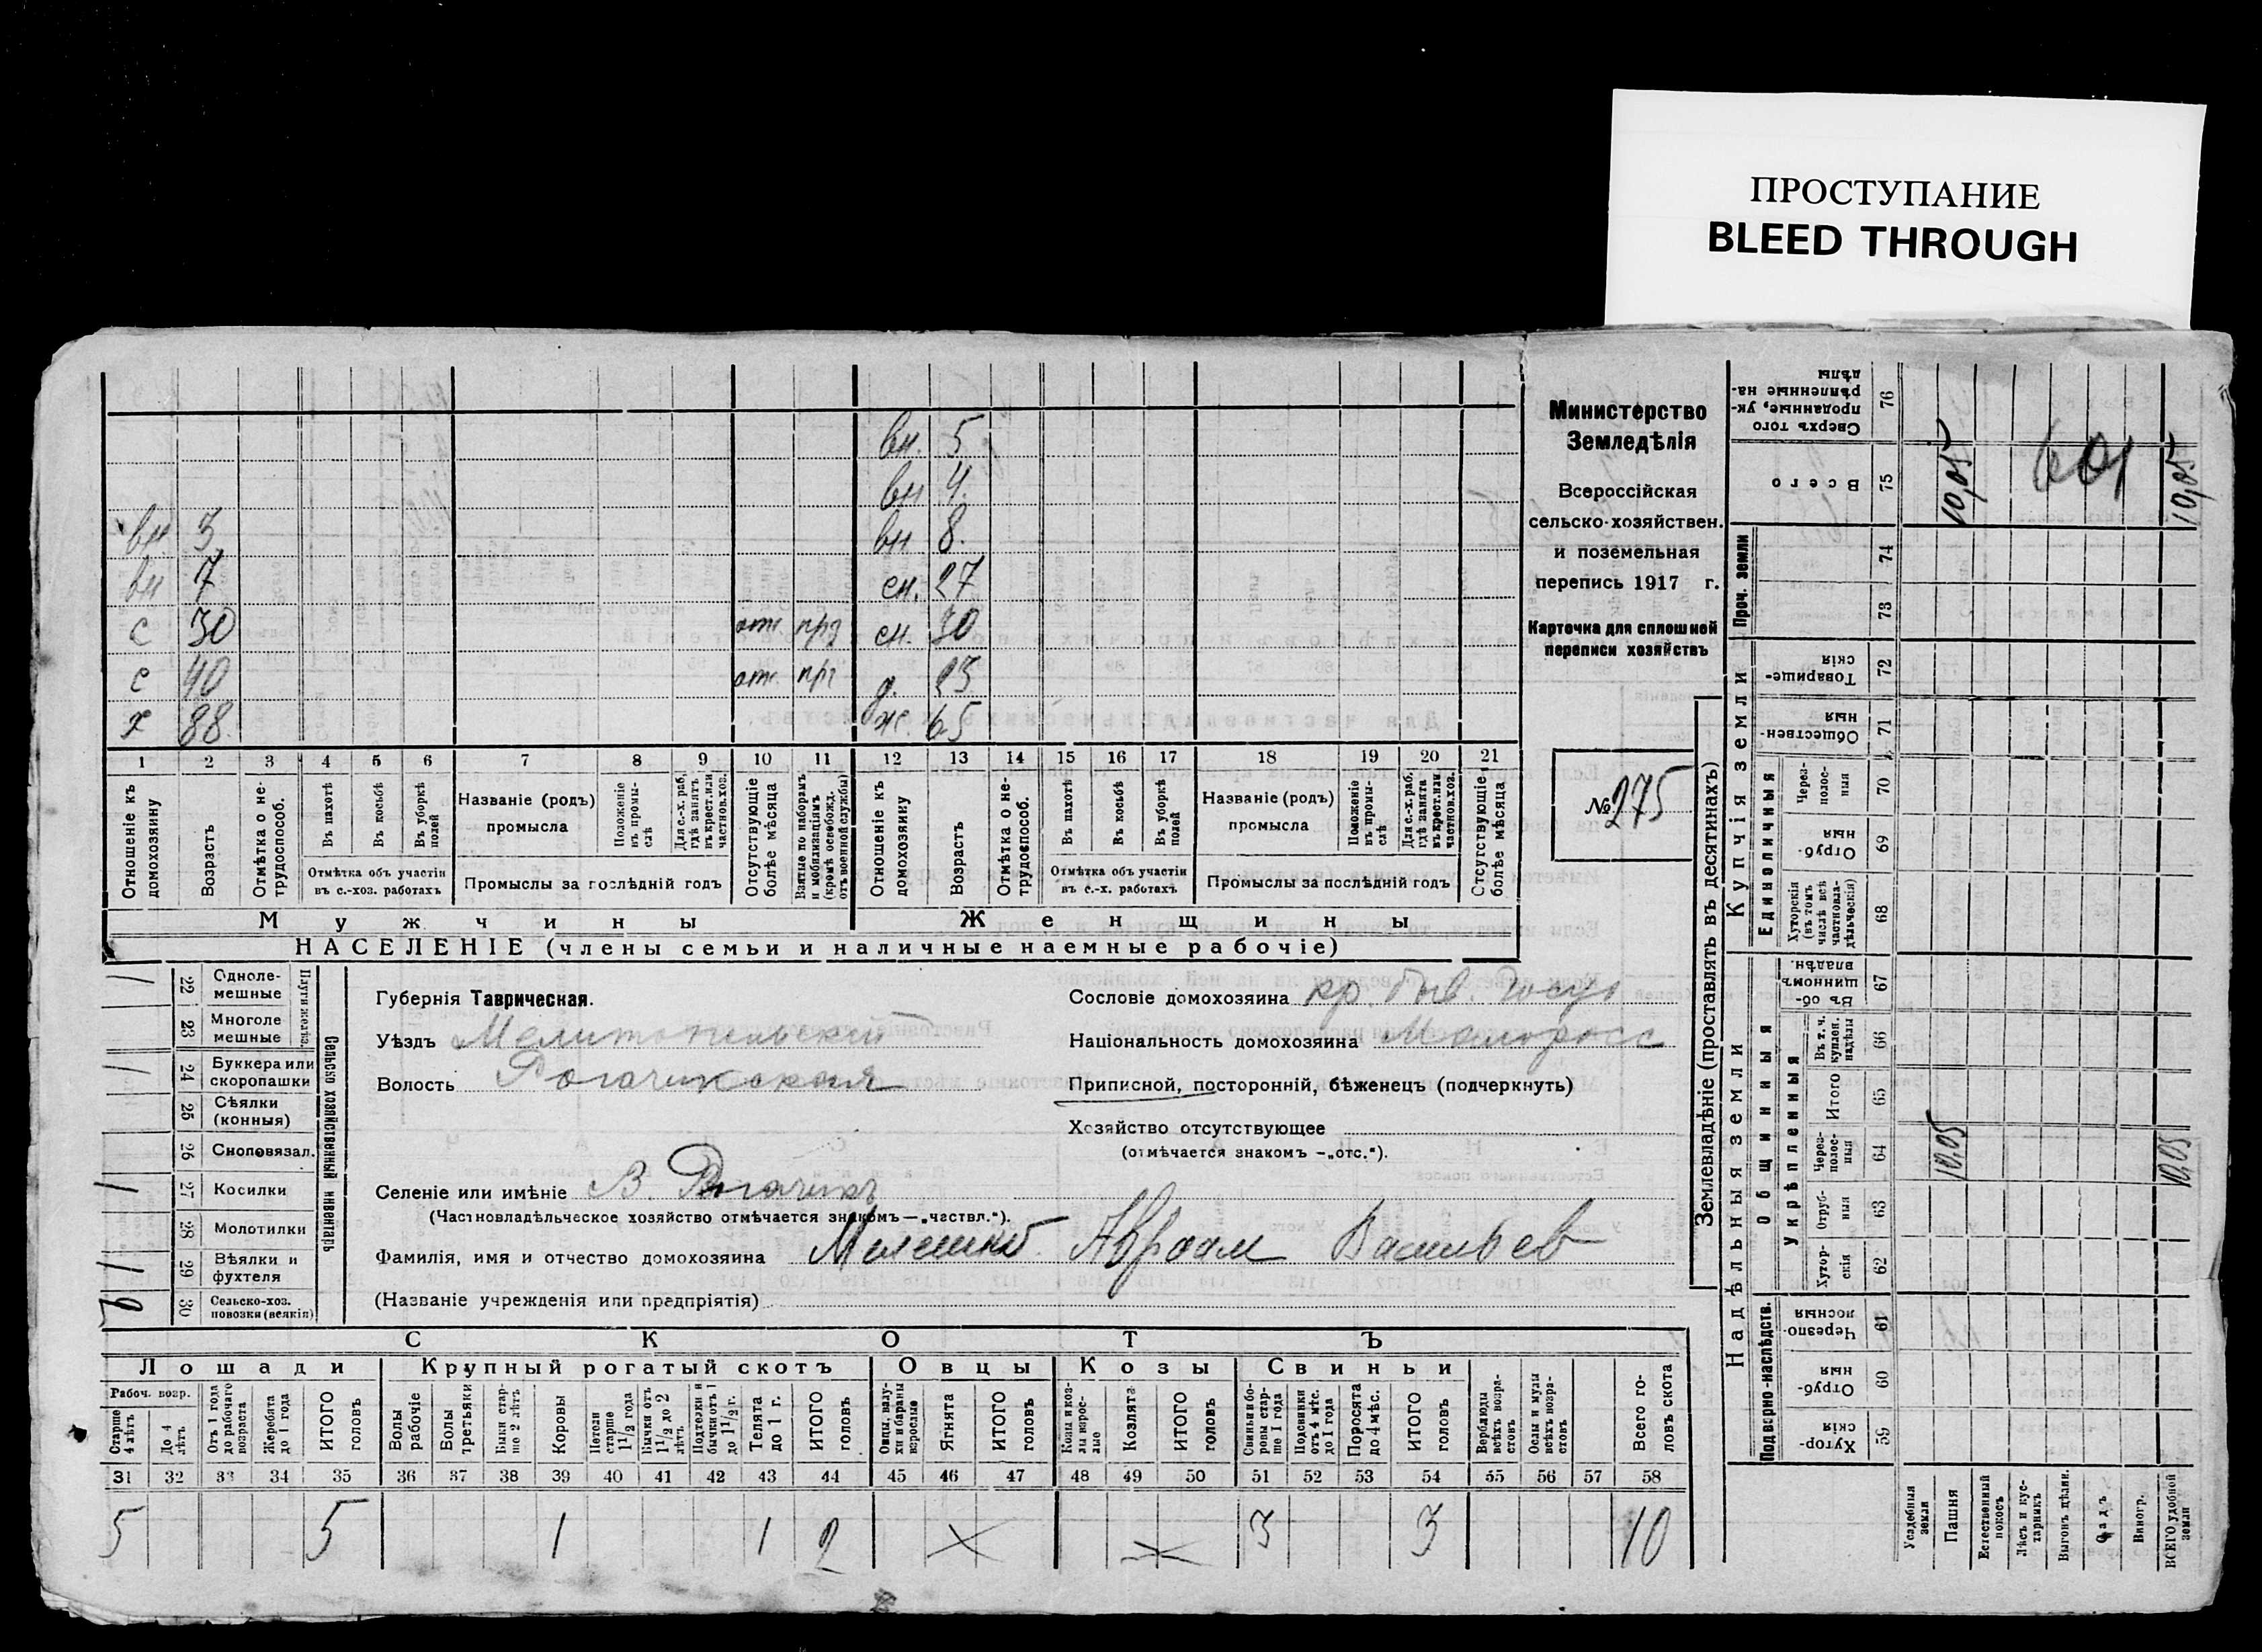 ПРОСТУПАНИЕ
BLEED THROUGH
вн. 5
вн 4
вн. 3 вн 8.
вн 7 сн. 27
с 30 отс прз сн. 30
с 40 отс прз д. 23
х 88. ж. 65
1 2 3 4 5 6 7 8 9 10 11 12 13 14 15 16 17 18 19 20 21
Отношеніе къ домохозяину
Возрастъ
Отмѣтка о не-трудоспособ.
Въ пахотѣ
Въ косьбѣ
Въ уборкѣ полей
Отмѣтка объ участіи въ с.-хоз. работахъ
Названіе (родъ) промысла
Положеніе въ промы-слѣ
Для с.-х. раб. гдѣ занятъ въ крест. или частнов. хоз.
Промыслы за послѣдній годъ
Отсутствующіе болѣе мѣсяца
Взятые по наборамъ и мобилизаціямъ (кромѣ освобожд. отъ военной службы)
Отношеніе къ домохозяину
Возрастъ
Отмѣтка о не-трудоспособ.
Въ пахотѣ
Въ косьбѣ
Въ уборкѣ полей
Отмѣтка объ участіи въ с.-х. работахъ
Названіе (родъ) промысла
Положеніе въ промы-слѣ
Для с.-х. раб. гдѣ занята въ крест. или частнов. хоз.
Промыслы за послѣдній годъ
Отсутствующіе болѣе мѣсяца
Мужчины Женщины
НАСЕЛЕНІЕ (члены семьи и наличные наемные рабочіе)
Министерство
Земледѣлія
Всероссійская
сельско-хозяйствен.
и поземельная
перепись 1917 г.
Карточка для сплошной
переписи хозяйствъ
№ 275
Сельско хозяйственный инвентарь
Плуги желѣз.
22 Одноле-мешные 1
23 Многоле мешные
24 Буккера или скоропашки 1
25 Сѣялки (конныя)
26 Сноповязал.
27 Косилки 1
28 Молотилки
29 Вѣялки и фухтеля 1
30 Сельско-хоз. повозки (всякія)
Губернія Таврическая.
Уѣздъ Мелитопольскій
Волость Рогачикская
Селеніе или имѣніе В. Рогачикъ
(Частновладѣльческое хозяйство отмѣчается знакомъ — „частвл.“).
Сословіе домохозяина кр. быв. Госуд
Національность домохозяина Малоросс
Приписной, посторонній, бѣженецъ (подчеркнуть)
Хозяйство отсутствующее
(отмѣчается знакомъ -„отс.“).
Фамилія, имя и отчество домохозяина Авраам Васильев
(Названіе учрежденія или предпріятія)
СКОТЪ
Лошади Крупный рогатый скотъ Овцы Козы Свиньи
Рабоч. возр.
Старше 4 лѣтъ
До 4 лѣтъ
Отъ 1 года до рабочаго возраста
Жеребята до 1 года
ИТОГО головъ
Волы рабочіе
Волы третьяки
Быки стар-ше 2 лѣтъ
Коровы
Нетели старше 1 1/2 года
Бычки отъ 1 1/2 до 2 лѣтъ
Подтелки и бычки отъ 1 до 1 1/2 г.
Телята до 1 г.
ИТОГО головъ
Овцы, валу-хи и бараны взрослые
Ягнята
ИТОГО головъ
Козы и коз-лы взрос-лые
Козлята
ИТОГО головъ
Свиньи и бо-ровы стар-ше 1 года
Подсвинки отъ 4 мѣс. до 1 года
Поросята до 4 мѣс.
ИТОГО головъ
Верблюды всѣхъ возра-стовъ
Ослы и мулы всѣхъ возра-стовъ
Всего го-ловъ скота
31 32 33 34 35 36 37 38 39 40 41 42 43 44 45 46 47 48 49 50 51 52 53 54 55 56 57 58
5 5 1 1 2 3 3 10
Землевладѣніе (проставлять въ десятинахъ)
Надѣльныя земли Купчія земли Проч. земли
Подворно-наслѣдств. Общинныя Единоличныя
Укрѣпленныя
Сверхъ того проданные, ук-рѣпленные на-дѣлы 76
Всего 75 10,05 601 10,05
74
73
Товарище-скія 72
Обществен-ныя 71
Через-полос-ныя 70
Отруб-ныя 69
Хуторскія (въ томъ числѣ всѣ частновла-дѣльческія) 68
Въ об-щинномъ владѣн. 67
Въ т. ч. куплен. надѣлы 66
Итого 65
Через-полос-ныя 64 10.05 10,05
Отруб-ныя 63
Хутор-скія 62
Черезпо-лосныя 61
Отруб-ныя 60
Хутор-скія 59
Усадебныя земли
Пашня
Естественный покосъ
Лѣсъ и кус-тарникъ
Выгонъ цѣлин.
Садъ
Виногр.
ВСЕГО удобной земли